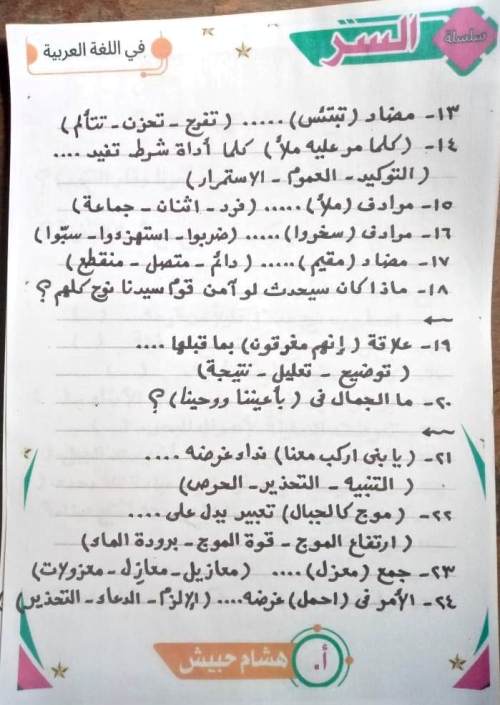 سلسلة
السر
في اللغة العربية
١٣- مضاد (تبتئس) ..... (تفرح - تحزن - تتألم)
١٤- (كلما مر عليه ملأ) كلما أداة شرط تفيد ....
(التوكيد - العموم - الاستمرار)
١٥- مرادف (ملأ) ..... (فرد - اثنان - جماعة)
١٦- مرادف (سخروا) ..... (ضربوا - استهزءوا - سبّوا)
١٧- مضاد (مقيم) ..... (دائم - متصل - منقطع)
١٨- ماذا كان سيحدث لو آمن قوم سيدنا نوح كلهم؟
١٩- علاقة (إنهم مغرقون) بما قبلها ....
(توضيح - تعليل - نتيجة)
٢٠- ما الجمال في (بأعيننا ووحينا)؟
٢١- (يا بنى اركب معنا) نداء غرضه ....
(التنبيه - التحذير - الحرص)
٢٢- (موج كالجبال) تعبير يدل على ....
(ارتفاع الموج - قوة الموج - برودة الماء)
٢٣- جمع (معزل) .... (معازيل - معازل - معزولات)
٢٤- الأمر في (احمل) غرضه .... (الإلزام - الدعاء - التحذير)
أ. هشام حبيش